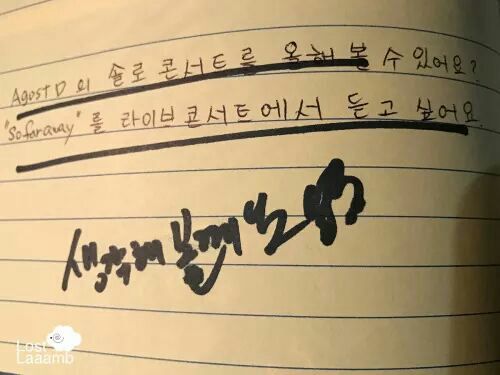 Agost D 의 솔로 콘서트를 올해 볼 수 있어요?
"So far away" 를 라이브 콘서트에서 듣고 싶어요
생각해볼께요
Lost
Laaamb